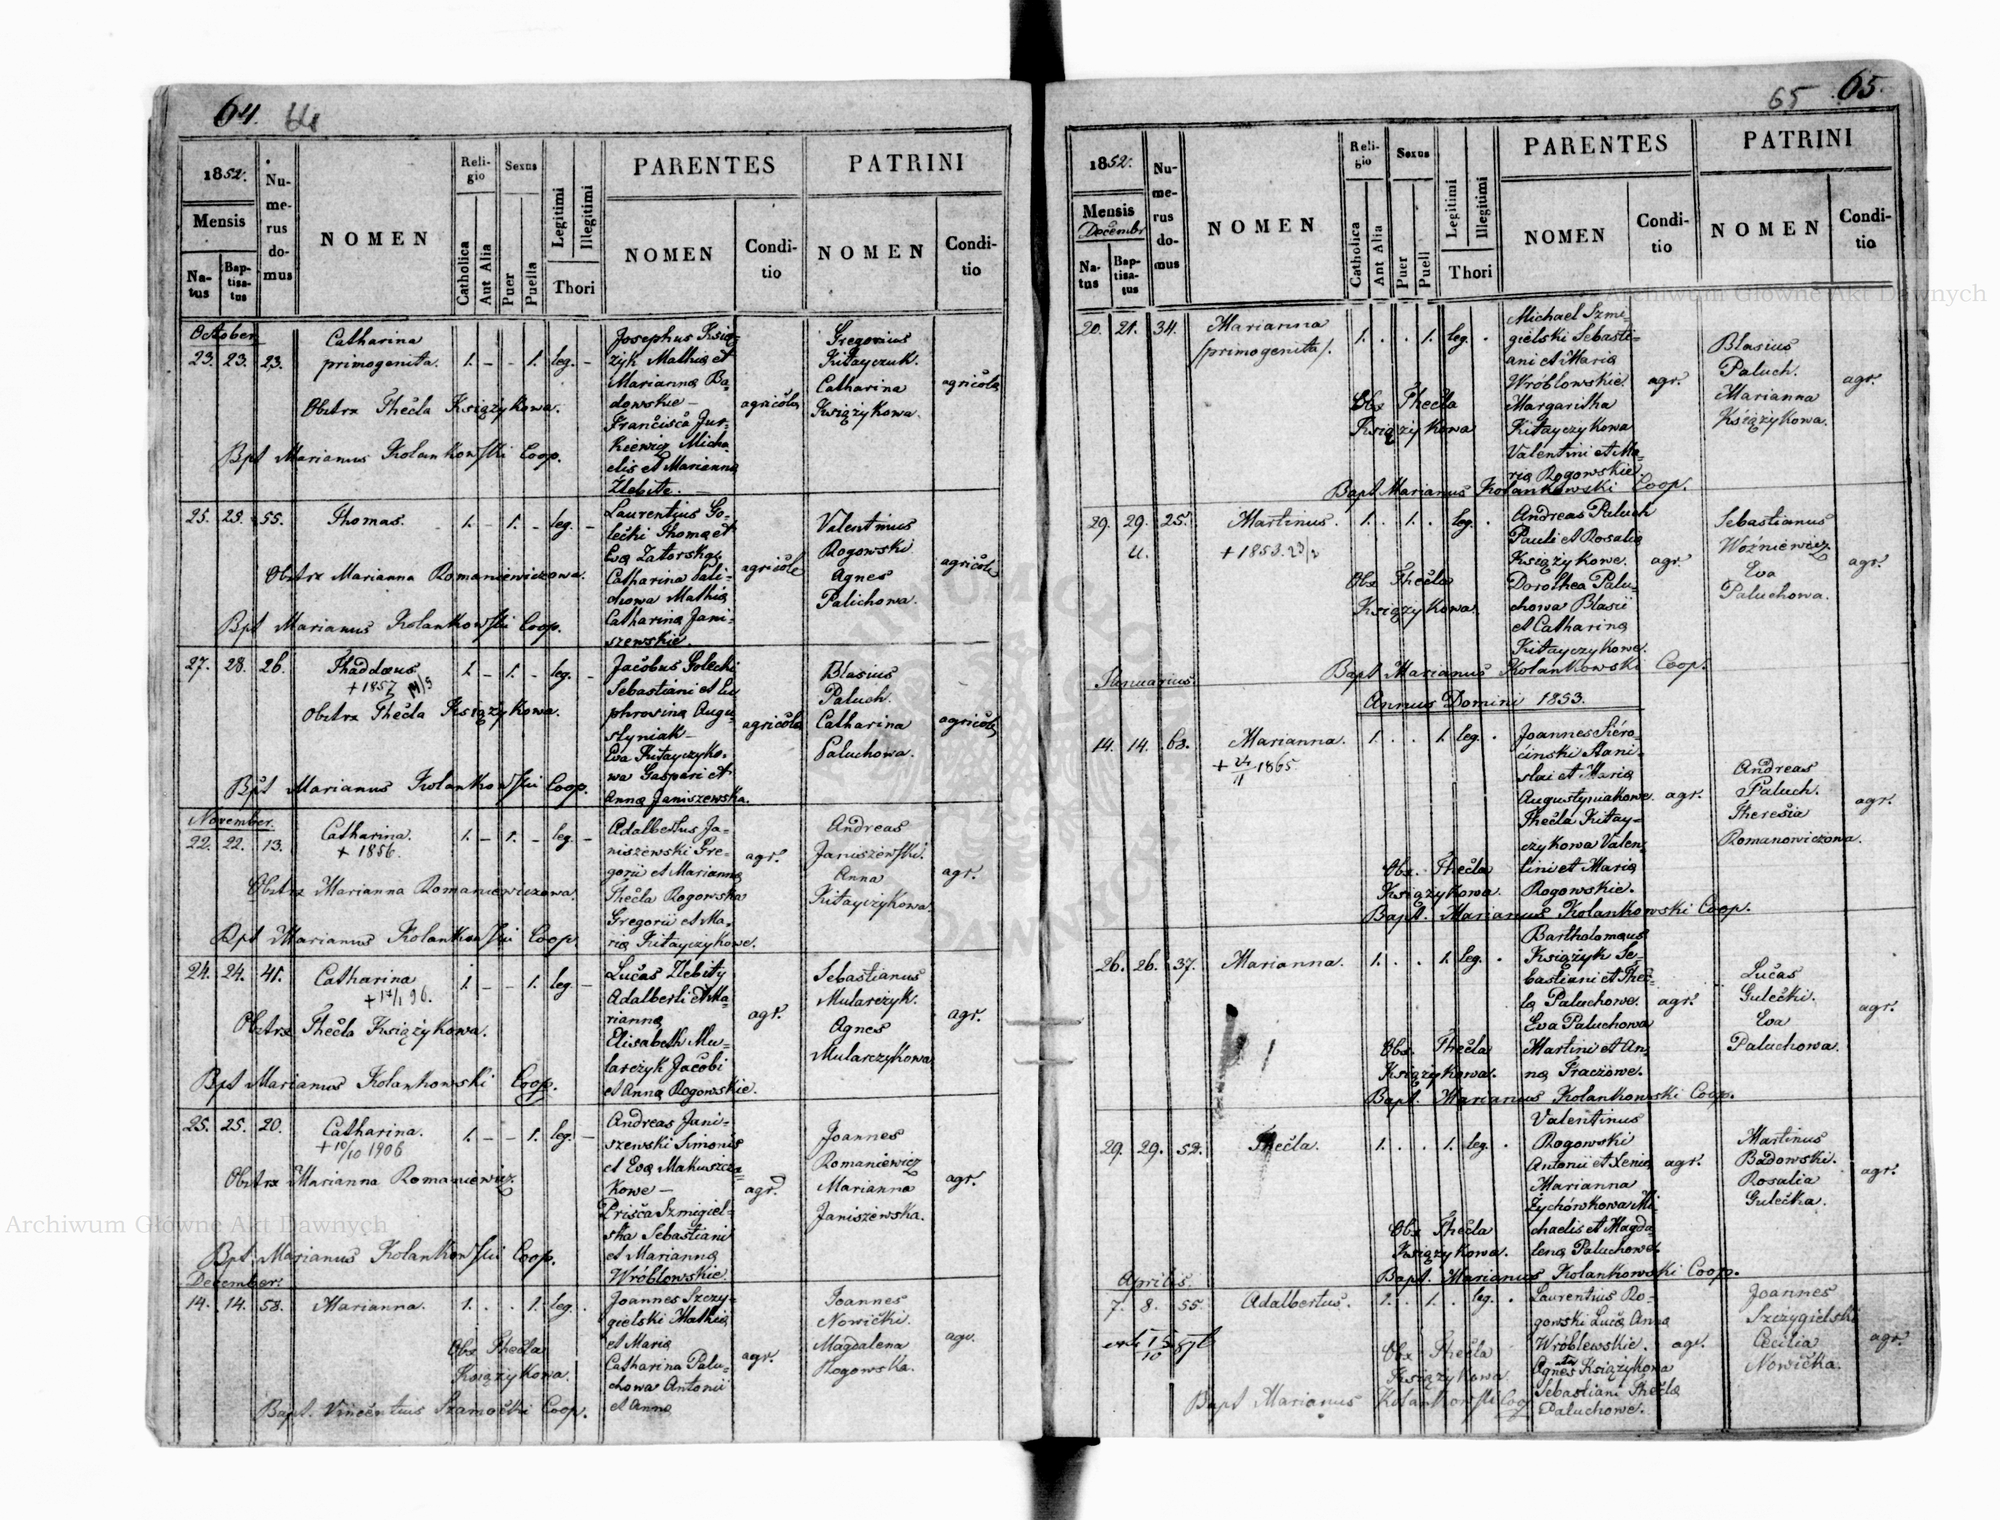 64. 64
1852.
Mensis
Na-
tus
Bap-
tisa-
tus
Nu-
me-
rus
do-
mus
NOMEN
Reli-
gio
Catholica
Aut Alia
Sexus
Puer
Puella
Legitimi
Illegitimi
Thori
PARENTES
NOMEN
Condi-
tio
PATRINI
NOMEN
Condi-
tio
October
23. 23. 23.
Catharina
primogenita.
1. – – 1. leg. –
Obstrx Thecla Książykowa.
Bpt Marianus Kolankowski Coop.
Josephus Ksią-
żyk Mathia et
Marianna Ba-
dowskie –
Francisca Jur-
kiewicz Micha
elis et Marianna
Zlebite. –
agricola
Gregorius
Kitayczuk.
Catharina
Książykowa.
agricola
25. 25. 55.
Thomas.
1. – 1. – leg. –
Obstrx Marianna Romaniewiczowa.
Bpt Marianus Kolankowski Coop.
Laurentius Go-
lecki Thoma et
Eva Zatorska,
Catharina Pali-
chowa Mathia
Catharina Jani-
szewskie
agricola
Valentinus
Rogowski
Agnes
Palichowa.
agricola
27. 28. 26.
Thaddaeus
1. – 1. – leg. –
Obstrx Thecla Książykowa.
Bpt Marianus Kolankowski Coop.
Jacobus Golecki
Sebastiani et Eu
phrosina Augu-
styniak –
Eva Kitayczyko-
wa Gaspari et
Anna Janiszewska.
agricola
Blasius
Paluch.
Catharina
Paluchowa.
agricola
November.
22. 22. 13.
Catharina.
+ 1856.
1. – 1. – leg –
Obstrx Marianna Romaniewiczowa
Bpt Marianus Kolankowski Coop.
Adalbertus Ja-
niszewski Gre-
gorii et Marianna
Thecla Rogowska
Gregorii et Ma-
ria Kitayczykowe.
agr.
Andreas
Janiszewski.
Anna
Kitayczykowa.
agr.
24. 24. 41.
Catharina
1. – – 1. leg –
Obstrx Thecla Książykowa.
Bpt Marianus Kolankowski Coop.
Lucas Zlebity
Adalberti et Ma-
rianna
Elisabeth Mu-
larczyk Jacobi
et Anna Rogowskie.
agr.
Sebastianus
Mularczyk.
Agnes
Mularczykowa
agr.
25. 25. 20.
Catharina.
+ 10/10 1906
1. – – 1. leg. –
Obstrx Marianna Romaniewicz.
Bpt. Marianus Kolankowski Coop.
Andreas Jani-
szewski Simonis
et Eva Makuszcza-
kowe –
Prisca Szmigiel-
ska Sebastiani
et Marianna
Wróblowskie.
agr.
Joannes
Romaniewicz
Marianna
Janiszewska.
agr.
December.
14. 14. 58.
Marianna.
1. . . 1. leg. .
Obs Thecla
Książykowa.
Bapt. Vincentius Szamocki Coop.
Joannes Szczy-
gielski Mathia
et Maria
Catharina Palu-
chowa Antonii
et Anna
agr.
Joannes
Nowicki.
Magdalena
Rogowska.
agr.
65 65.
1852.
Mensis
Decembr
Na-
tus
Bap-
tisa-
tus
Nu-
me-
rus
do-
mus
NOMEN
Reli-
gio
Catholica
Ant Alia
Sexus
Puer
Puell
Legitimi
Illegitimi
Thori
PARENTES
NOMEN
Condi-
tio
PATRINI
NOMEN
Condi-
tio
20. 21. 34.
Marianna
/primogenita/.
1. . . 1. leg. .
Obs Thecla
Książykowa
Michael Szmi-
gielski Sebasti-
ani et Maria
Wróblowskie.
Margaritha
Kitayczykowa
Valentini et Ma-
ria Rogowskie.
Bapt Marianus Kolankowski Coop.
agr.
Blasius
Paluch.
Marianna
Książykowa.
agr.
29. 29. 25.
Martinus.
1. . 1. . leg. .
Obs Thecla
Książykowa.
Andreas Paluch
Pauli et Rosalia
Książykowe.
Dorothea Palu-
chowa Blasii
et Catharina
Kitayczykowe.
Bapt Marianus Kolankowski Coop.
agr.
Sebastianus
Woźniewicz
Eva
Paluchowa.
agr.
Januarius.
Annus Domini 1853.
14. 14. 68.
Marianna.
1. . . 1. leg. .
Obs. Thecla
Książykowa.
Bapt. Marianus Kolankowski Coop.
Joannes Siero-
ciński Stani-
slai et Maria
Augustyniakowe.
Thecla Kitay-
czykowa Valen-
tini et Maria
Rogowskie.
agr.
Andreas
Paluch.
Theresia
Romanowiczowa.
agr.
26. 26. 37.
Marianna.
1. . . 1. leg. .
Obs. Thecla
Książykowa.
Bapt. Marianus Kolankowski Coop.
Bartholomaus
Książyk Se-
bastiani et Thec-
la Paluchowe.
Eva Paluchowa
Martini et An-
na Praczowe.
agr.
Lucas
Gulecki.
Eva
Paluchowa.
agr.
29. 29. 52.
Thecla.
1. . . 1. leg. .
Obs Thecla
Książykowa.
Bapt. Marianus Kolankowski Coop.
Valentinus
Rogowski
Antonii et Xenia
Marianna
Żychówkowa Mi
chaelis et Magda-
lena Paluchowe.
agr.
Martinus
Badowski.
Rosalia
Gulecka.
agr.
Aprilis.
7. 8. 55.
Adalbertus.
1. . 1. . leg. .
Obs Thecla
Książykowa
Bapt Marianus Kolankowski Coop
Laurentius Ro-
gowski Luca Anna
Wróblewskie.
Agnes Książykowa
Sebastiani Thecla
Paluchowe.
agr.
Joannes
Szczygielski
Cecilia
Nowicka.
agr.
Archiwum Główne Akt Dawnych
Archiwum Główne Akt Dawnych